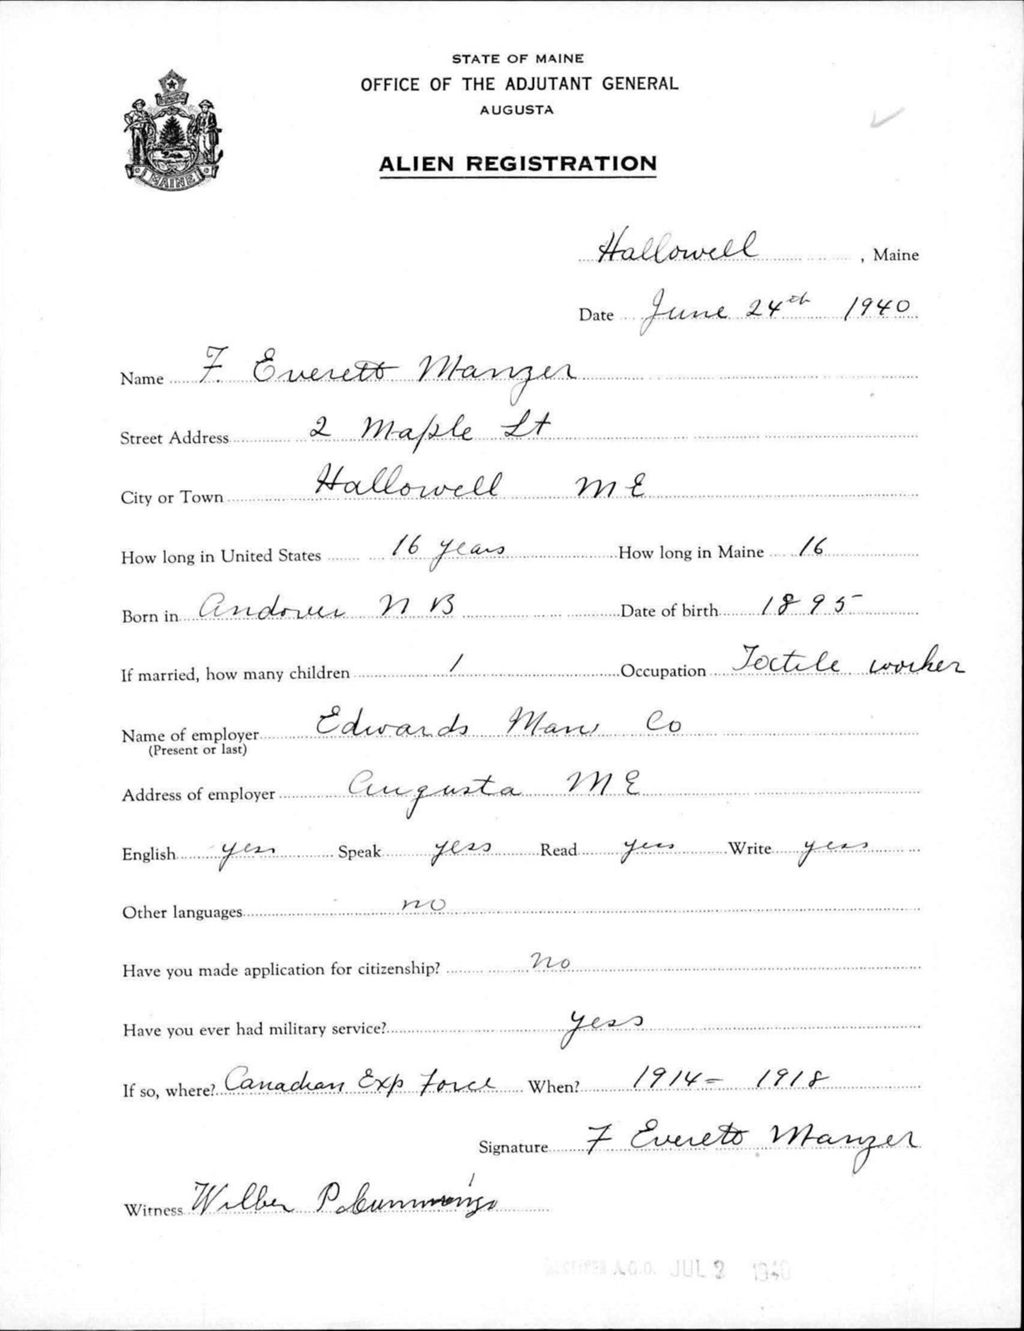 STATE OF MAINE
OFFICE OF THE ADJUTANT GENERAL
AUGUSTA
ALIEN REGISTRATION
MAINE
Hallowell, Maine
Date June 24th 1940
Name F. Everett Manzer
Street Address 2 Maple St
City or Town Hallowell ME
How long in United States 16 years How long in Maine 16
Born in Andover N B Date of birth 1895
If married, how many children 1 Occupation Textile worker
Name of employer Edwards Man Co
(Present or last)
Address of employer Augusta ME
English yes Speak yess Read yes Write yess
Other languages no
Have you made application for citizenship? No
Have you ever had military service? yess
If so, where? Canadian Exp force When? 1914 - 1918
Signature F Everett Manzer
Witness Wilber P Cummings
RECEIVED A.G.O. JUL 2 1940